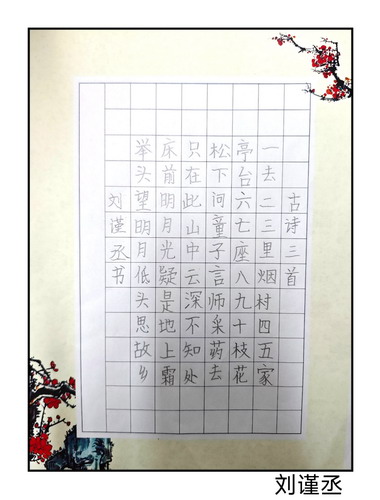 古诗三首
一去二三里烟村四五家
亭台六七座八九十枝花
松下问童子言师采药去
只在此山中云深不知处
床前明月光疑是地上霜
举头望明月低头思故乡
刘谨丞书
刘谨丞